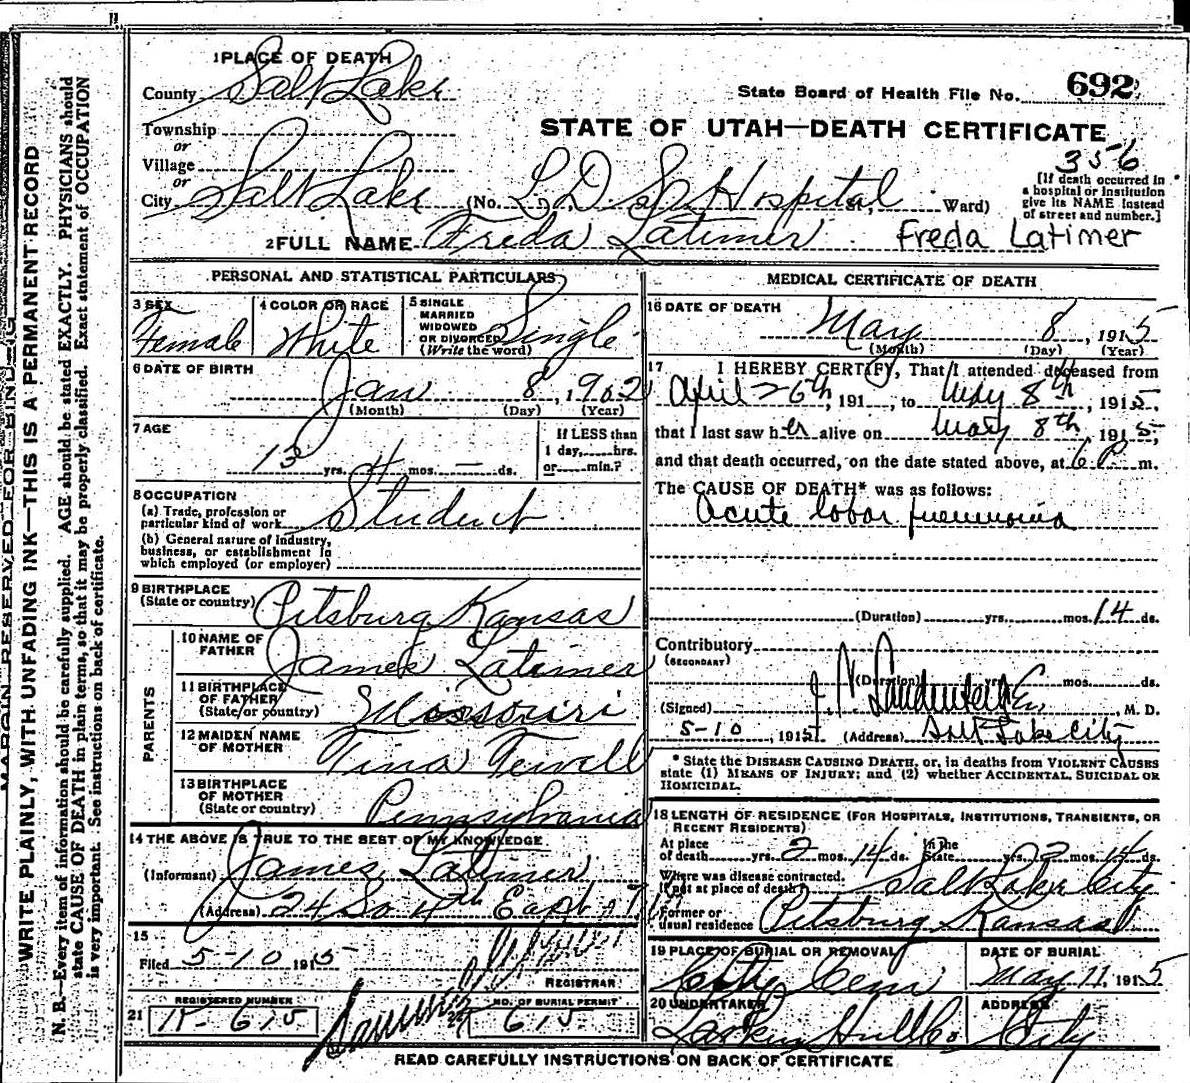 1 PLACE OF DEATH
County Salt Lake
State Board of Health File No. 692
Township
or
Village
or
STATE OF UTAH—DEATH CERTIFICATE
356
City Salt Lake (No. L D S Hospital St., Ward)
[If death occurred in
a hospital or institution
give its NAME instead
of street and number.]
2 FULL NAME Freda Latimer Freda Latimer
PERSONAL AND STATISTICAL PARTICULARS
3 SEX
Female
4 COLOR OR RACE
White
5 SINGLE
MARRIED
WIDOWED
OR DIVORCED
(Write the word)
Single
6 DATE OF BIRTH
Jan 8, 1902
(Month) (Day) (Year)
7 AGE
13 yrs. 4 mos. — ds.
If LESS than
1 day, hrs.
or min.?
8 OCCUPATION
(a) Trade, profession or
particular kind of work Student
(b) General nature of industry,
business, or establishment in
which employed (or employer)
9 BIRTHPLACE
(State or country) Pitsburg Kansas
PARENTS
10 NAME OF
FATHER James Latimer
11 BIRTHPLACE
OF FATHER
(State or country) Missouri
12 MAIDEN NAME
OF MOTHER Tina Tewell
13 BIRTHPLACE
OF MOTHER
(State or country) Pennsylvania
14 THE ABOVE IS TRUE TO THE BEST OF MY KNOWLEDGE
(Informant) James Latimer
(Address) 24 So 4th East
15
Filed 5-10 1915
REGISTRAR
21 REGISTERED NUMBER
615
22 NO. OF BURIAL PERMIT
615
MEDICAL CERTIFICATE OF DEATH
16 DATE OF DEATH
May 8, 1915
(Month) (Day) (Year)
17 I HEREBY CERTIFY, That I attended deceased from
April 26th, 191, to May 8th, 1915,
that I last saw her alive on May 8th, 1915,
and that death occurred, on the date stated above, at 6 P m.
The CAUSE OF DEATH* was as follows:
Acute lobar pneumonia
(Duration) yrs. mos. 14 ds.
Contributory
(SECONDARY)
(Duration) yrs. mos. ds.
(Signed) M. D.
5-10, 1915 (Address) Salt Lake City
* State the DISEASE CAUSING DEATH, or, in deaths from VIOLENT CAUSES
state (1) MEANS OF INJURY; and (2) whether ACCIDENTAL, SUICIDAL OR
HOMICIDAL.
18 LENGTH OF RESIDENCE (FOR HOSPITALS, INSTITUTIONS, TRANSIENTS, OR
RECENT RESIDENTS)
At place
of death yrs. 2 mos. 14 ds. In the
State yrs. 2 mos. 14 ds.
Where was disease contracted,
if not at place of death? Salt Lake City
Former or
usual residence Pitsburg Kansas
19 PLACE OF BURIAL OR REMOVAL
City Cem
DATE OF BURIAL
May 11, 1915
20 UNDERTAKER
ADDRESS
City
READ CAREFULLY INSTRUCTIONS ON BACK OF CERTIFICATE
MARGIN RESERVED FOR BINDING
WRITE PLAINLY, WITH UNFADING INK—THIS IS A PERMANENT RECORD
N. B.—Every item of information should be carefully supplied. AGE should be stated EXACTLY. PHYSICIANS should
state CAUSE OF DEATH in plain terms, so that it may be properly classified. Exact statement of OCCUPATION
is very important. See instructions on back of certificate.